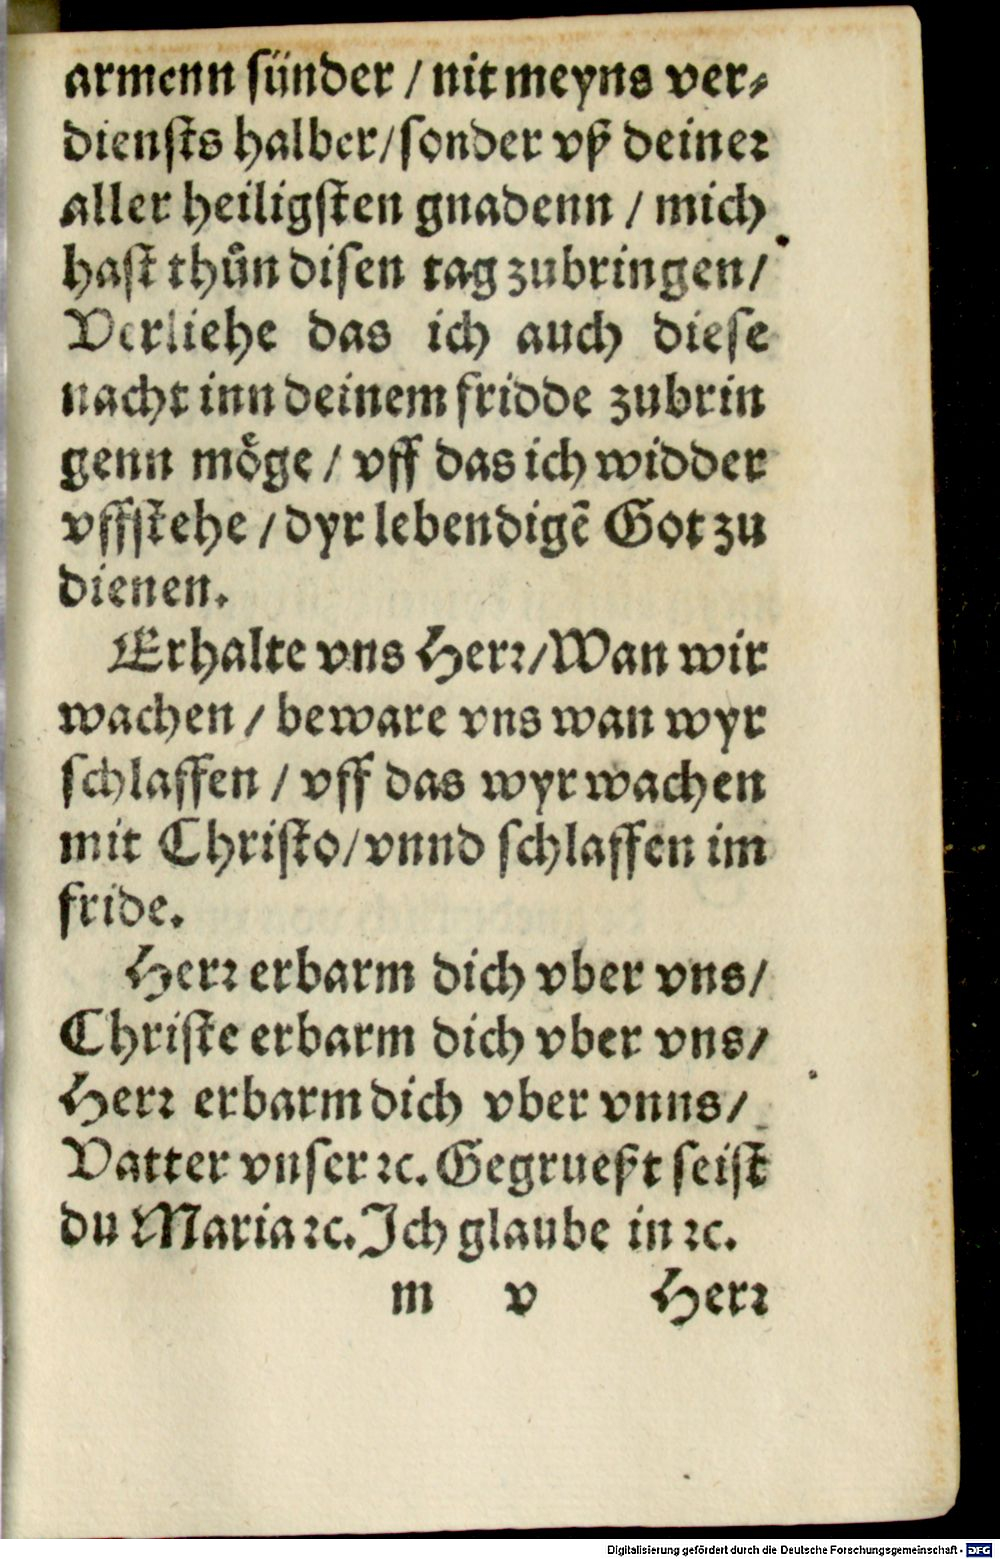 armenn sünder / nit meyns ver⸗
diensts halber/sonder vß deiner
aller heiligsten gnadenn / mich
hast thůn disen tag zubringen/
Verliehe das ich auch diese
nacht inn deinem fridde zubrin
genn moͤge / vff das ich widder
vffstehe / dyr lebendigẽ Got zu
dienen.
Erhalte vns Herr/Wan wir
wachen / beware vns wan wyr
schlaffen / vff das wyr wachen
mit Christo/vnnd schlaffen im
fride.
Herr erbarm dich vber vns/
Christe erbarm dich vber vns/
Herr erbarm dich vber vnns/
Vatter vnser ꝛc. Gegrueßt seist
du Maria ꝛc. Ich glaube in ꝛc.
m v Herr
Digitalisierung gefördert durch die Deutsche Forschungsgemeinschaft - DFG